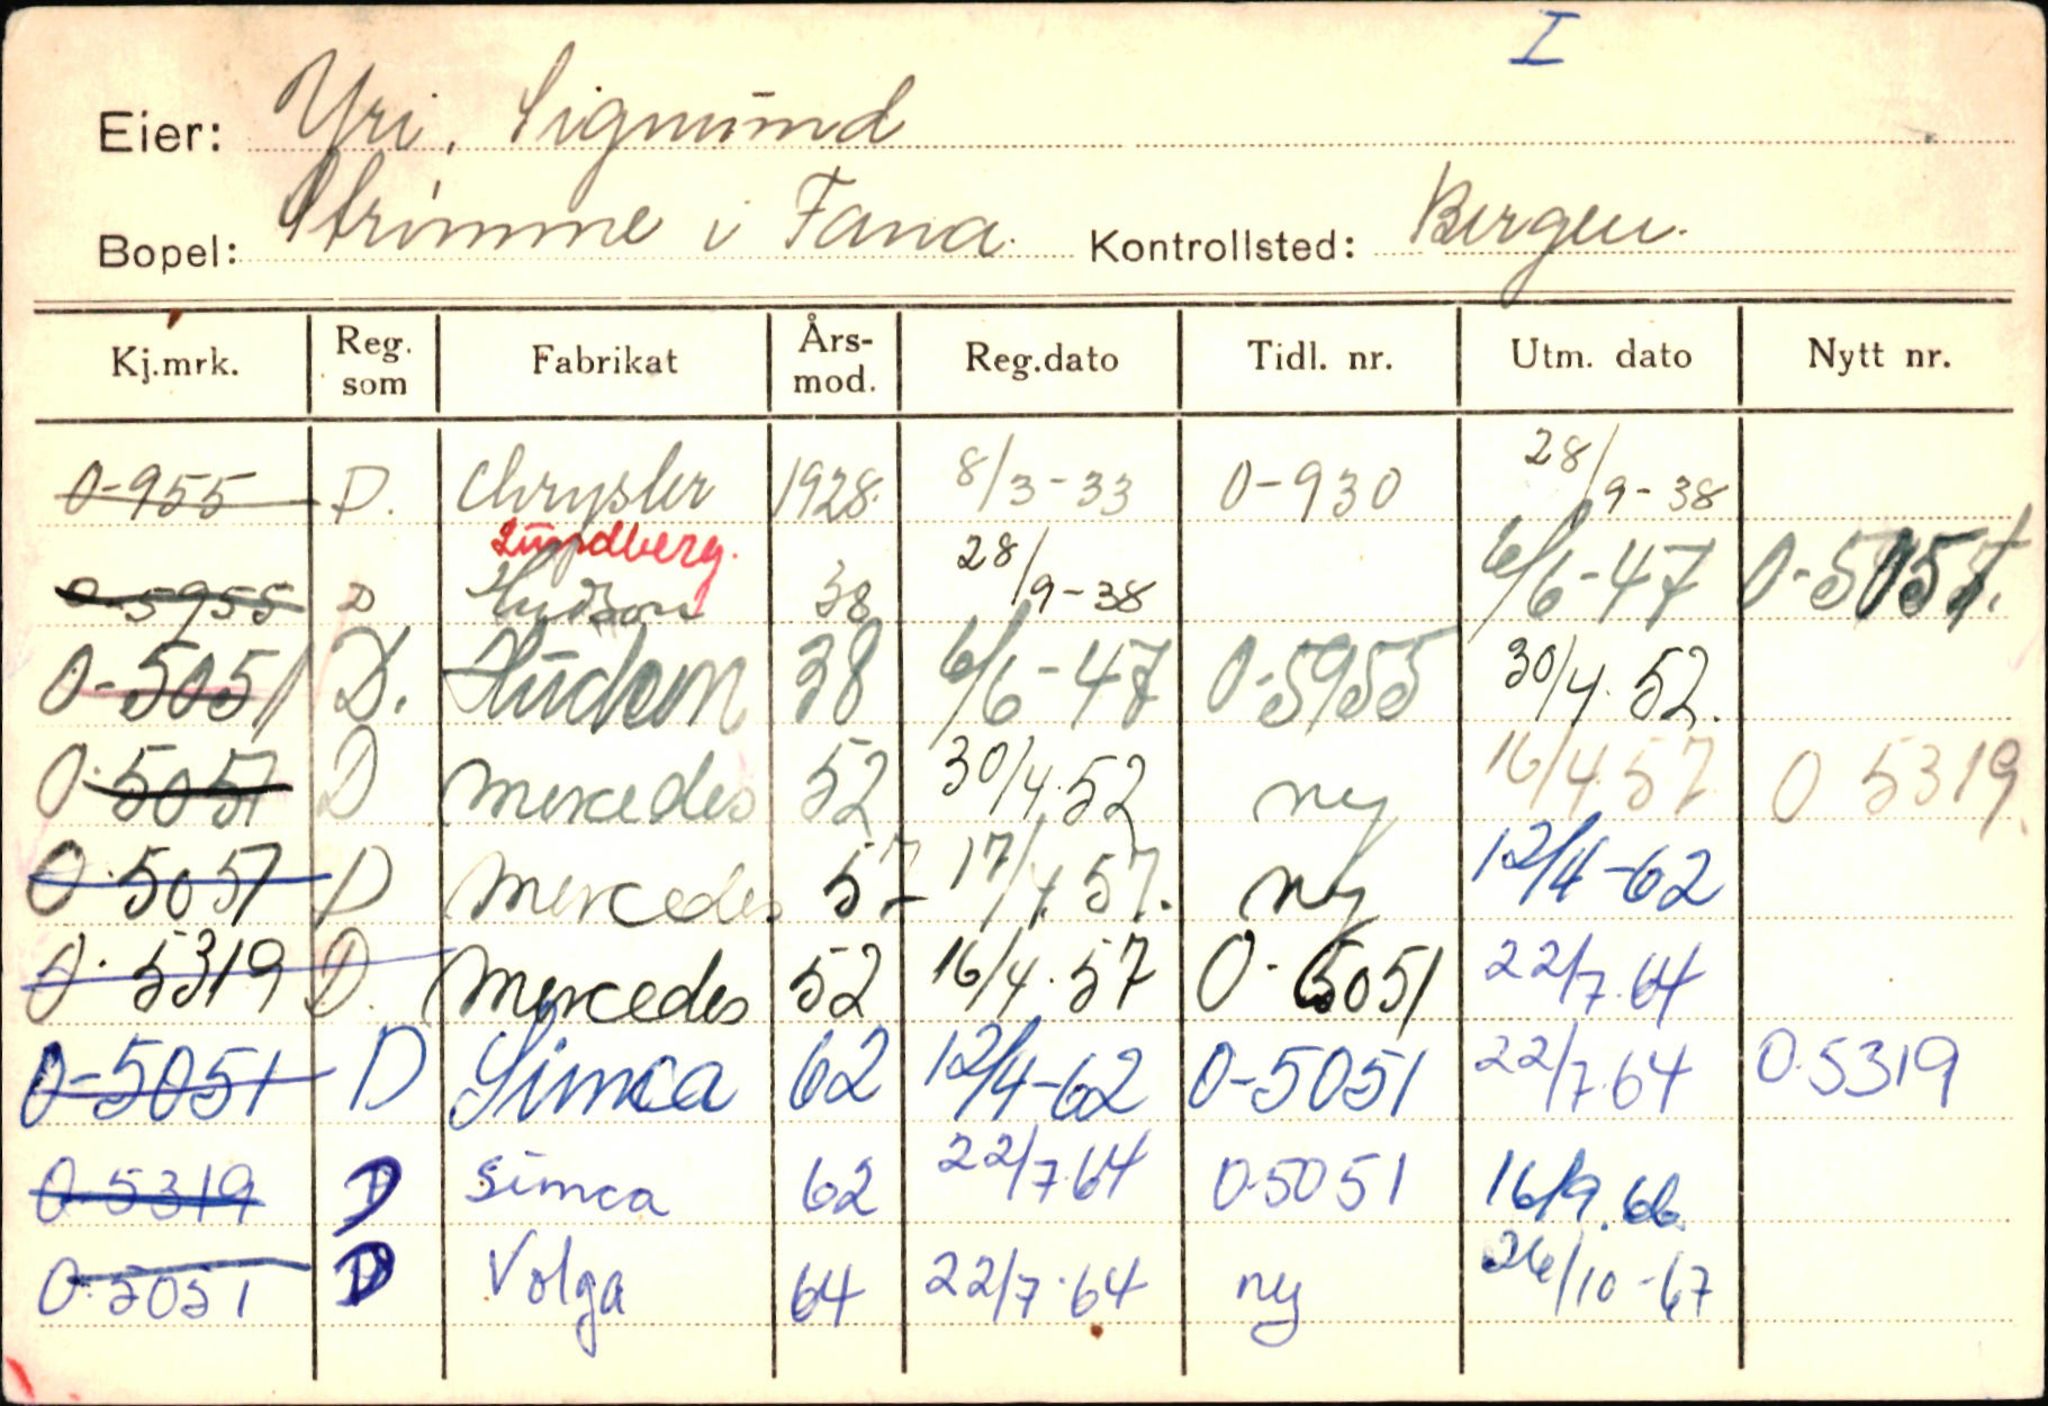 I
Eier: Yri, Sigmund
Bopel: Strimme i Fana. Kontrollsted: Bergen.
Kj.mrk. Reg. som Fabrikat Års-mod. Reg.dato Tidl. nr. Utm. dato Nytt nr.
O-955 D. Chrysler 1928. 8/3-33 O-930 28/9-38
Lundberg.
O-5955 D Hudson 38 28/9-38 6/6-47 O-5051.
O-5051 D. Hudson 38 6/6-47 O-5955 30/4.52.
O.5051 D Mercedes 52 30/4.52 ny 16/4.57 O 5319.
O.5051 D Mercedes 57 17/4.57. ny 12/4-62
O.5319 D. Mercedes 52 16/4.57 O.5051 22/7.64
O-5051 D Simca 62 12/4-62 O-5051 22/7.64 O.5319
O.5319 D Simca 62 22/7.64 O.5051 16/9.66.
O.5051 D Volga 64 22/7.64 ny 26/10-67